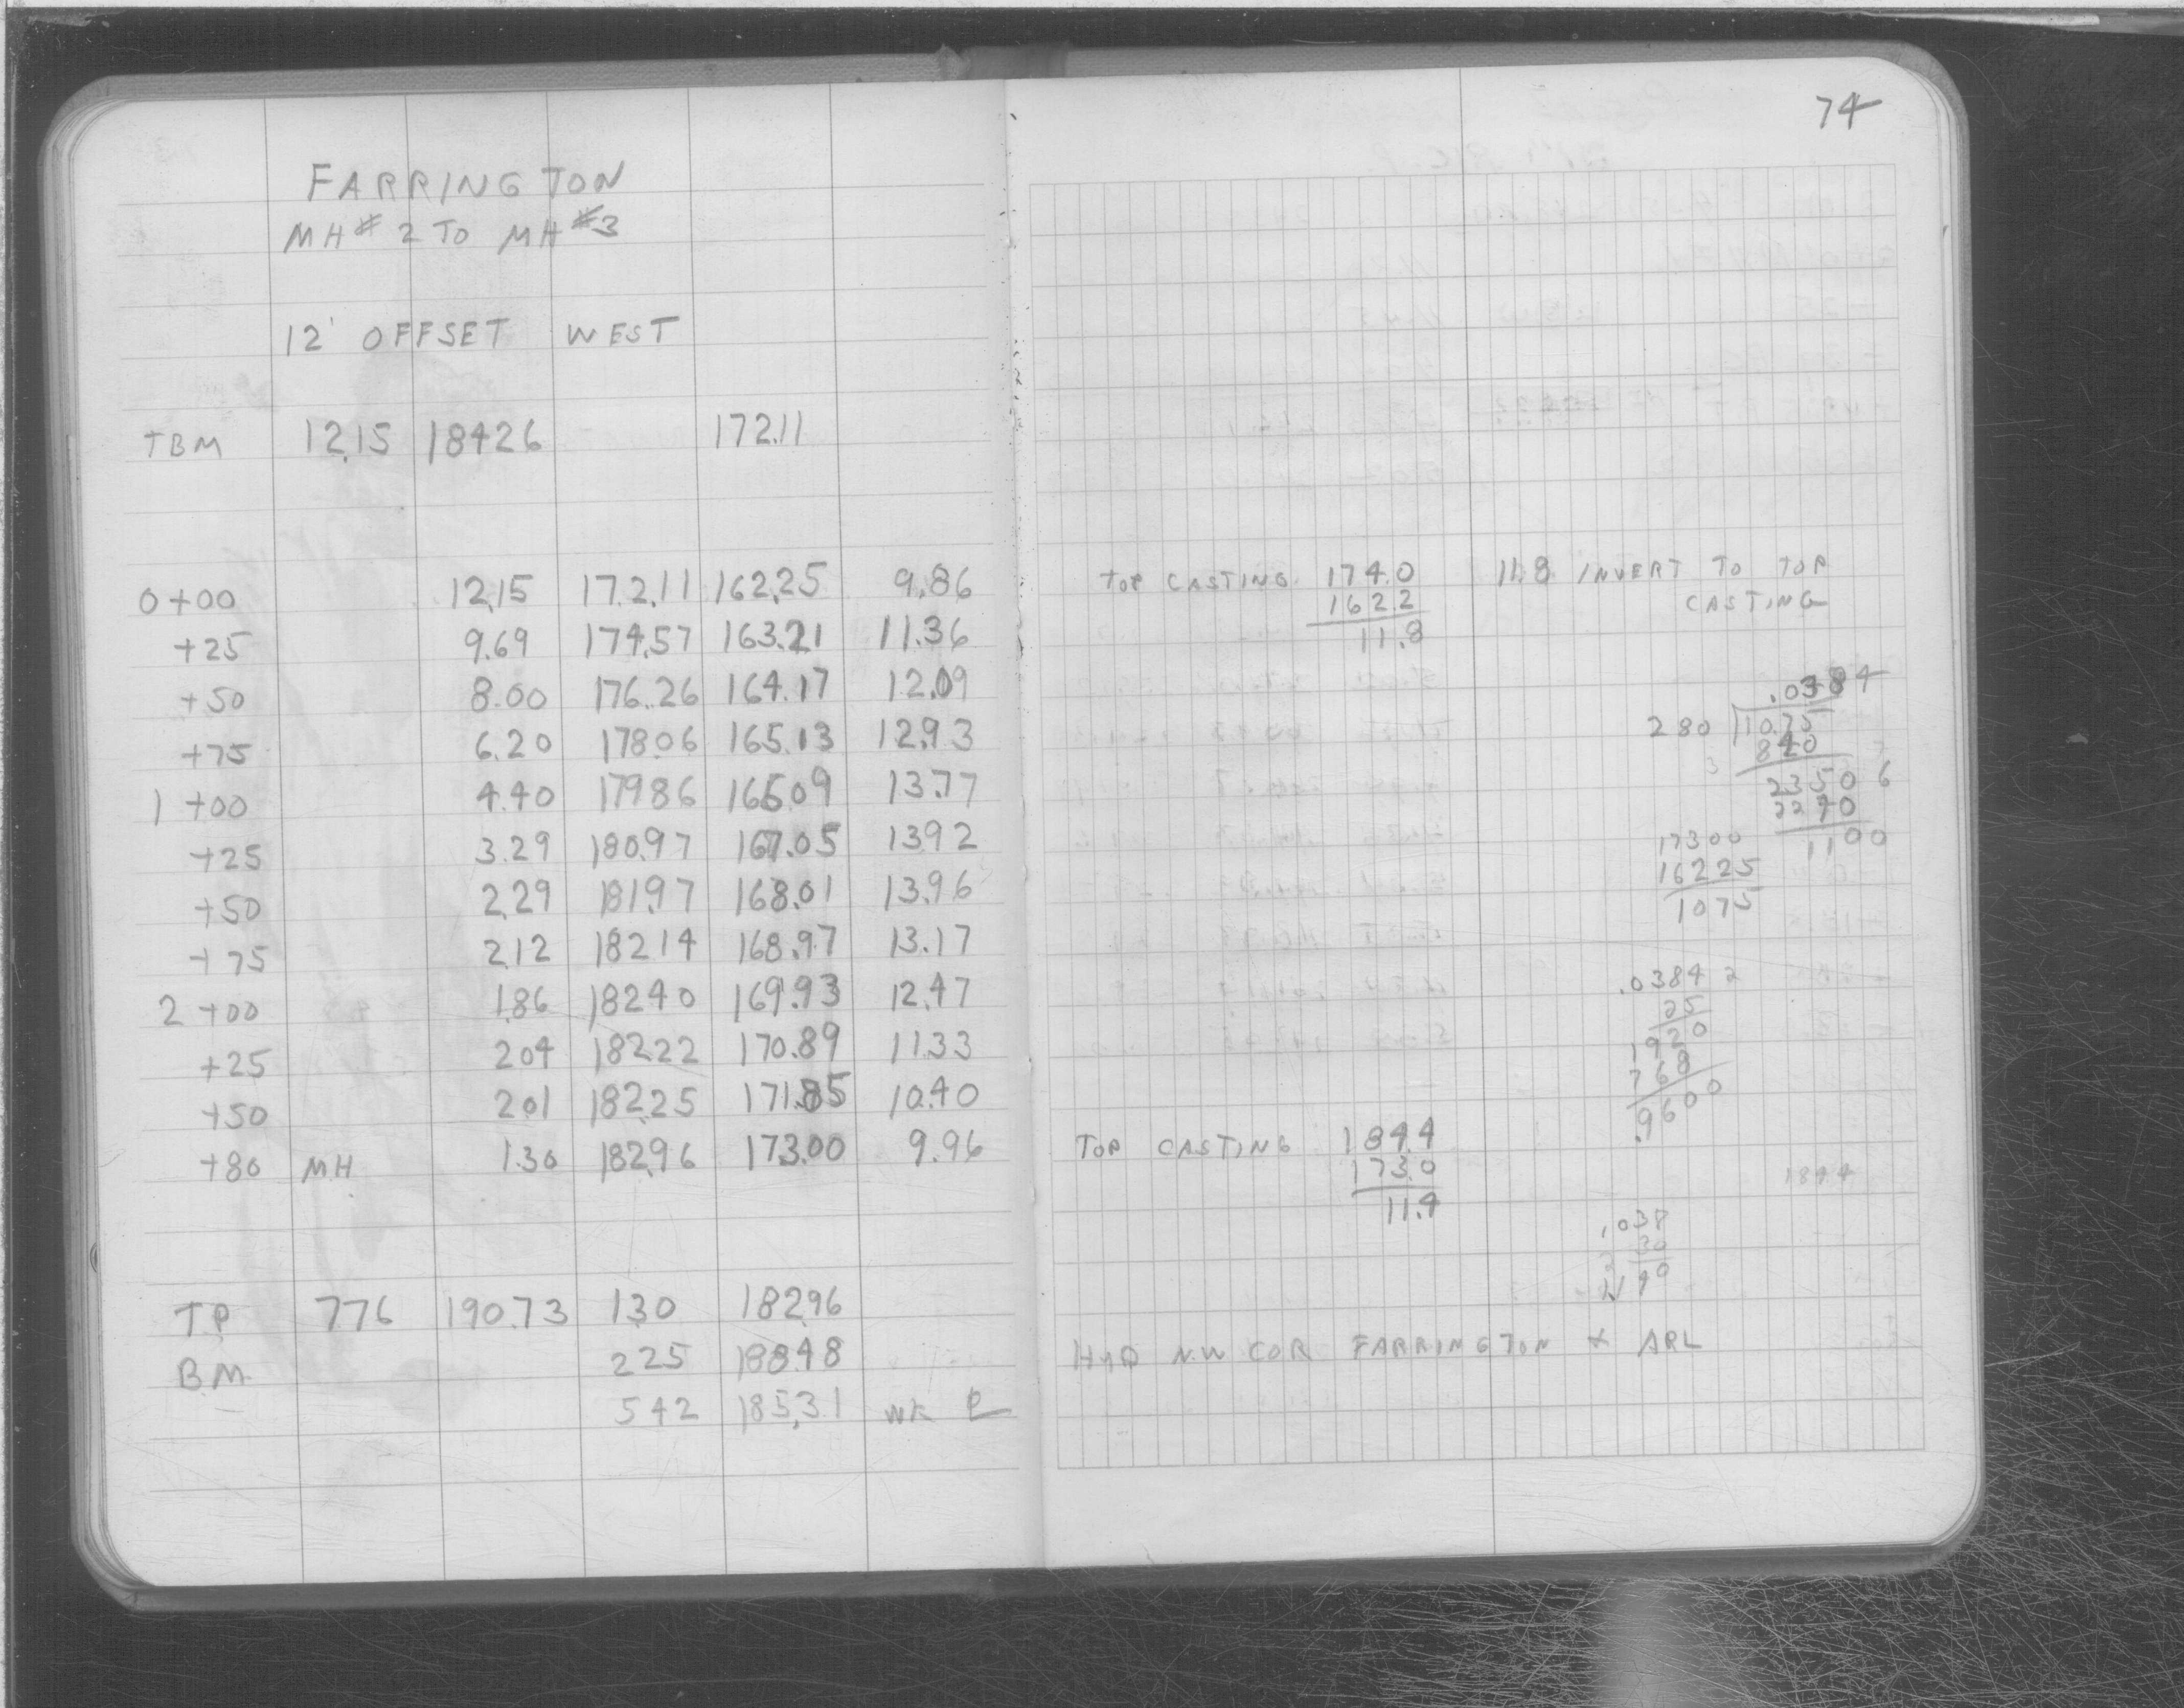 FARRINGTON
MH# 2 TO MH #3
12' OFFSET WEST
TBM 12.15 184.26 172.11
0+00 12.15 172.11 162.25 9.86
+25 9.69 174.57 163.21 11.36
+50 8.00 176.26 164.17 12.09
+75 6.20 178.06 165.13 12.93
1+00 4.40 179.86 166.09 13.77
+25 3.29 180.97 167.05 13.92
+50 2.29 181.97 168.01 13.96
+75 2.12 182.14 168.97 13.17
2+00 1.86 182.40 169.93 12.47
+25 2.04 182.22 170.89 11.33
+50 2.01 182.25 171.85 10.40
+80 MH 1.30 182.96 173.00 9.96
TP 7.76 190.73 1.30 182.96
BM 2.25 188.48
5.42 185.31 WK
74
TOP CASTING 174.0 11.8 INVERT TO TOP
162.2 CASTING
11.8
.0384
280 10.75
840
2350
1100
173.00
162.25
1075
.0384 2
25
1920
768
.9600
TOP CASTING 184.4
173.0
11.4
184.4
.038
30
HYD N.W COR FARRINGTON & ARL